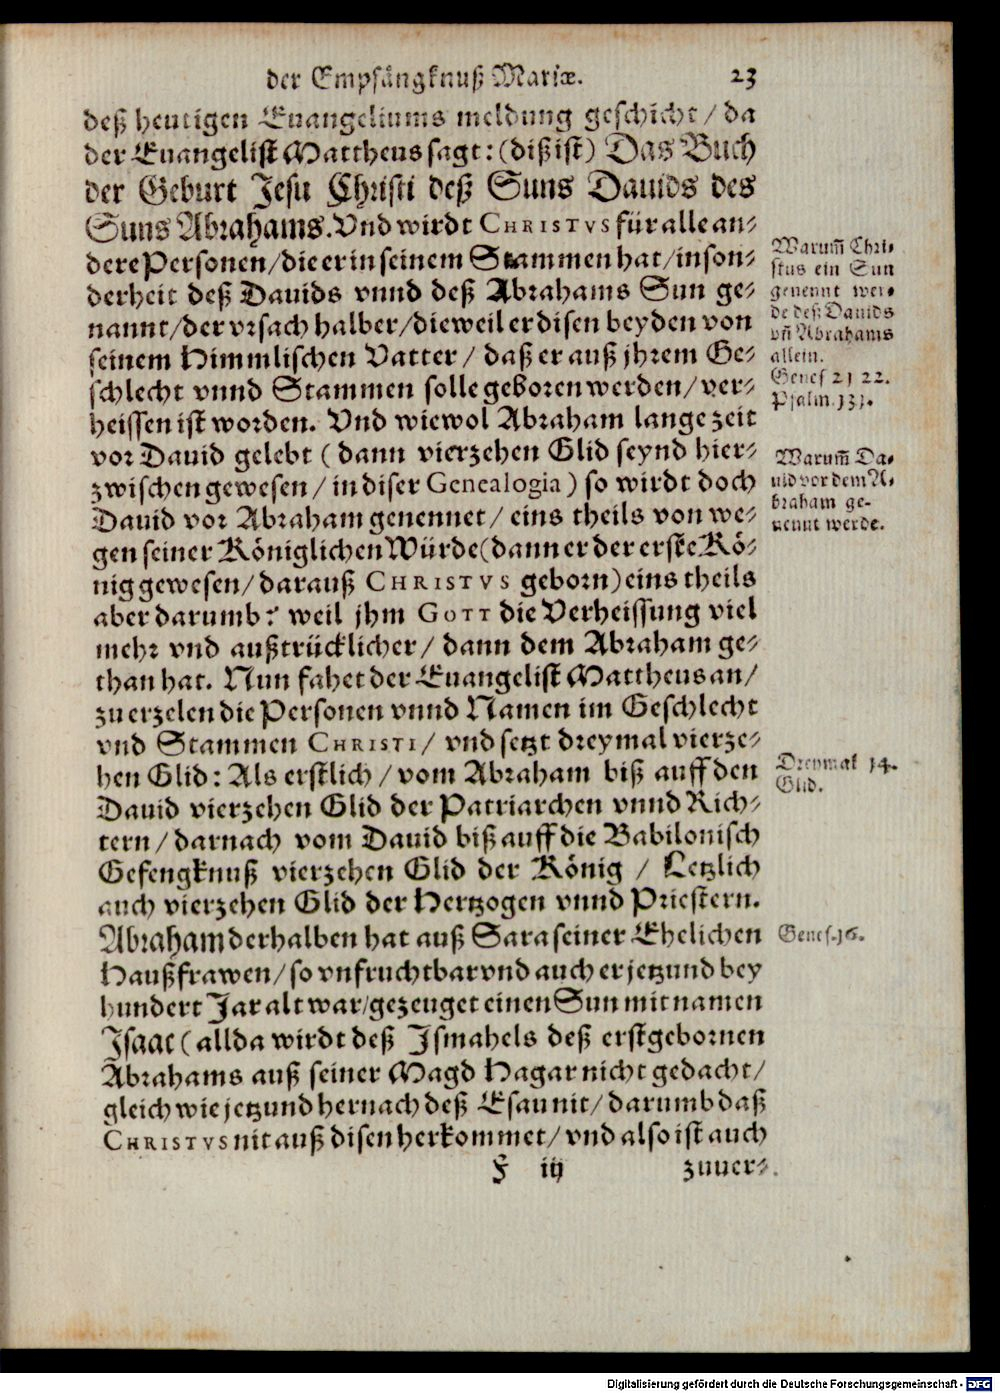 der Empfängknuß Mariæ. 23
deß heutigen Euangeliums meldung geschicht / da
der Euangelist Mattheus sagt: (diß ist) Das Buch
der Geburt Jesu Christi deß Suns Dauids des
Suns Abrahams. Vnd wirdt CHRISTVS für alle an⸗
dere Personen / die er in seinem Stammen hat / inson⸗
derheit deß Dauids vnnd deß Abrahams Sun ge⸗
nannt / der vrsach halber / dieweil er disen beyden von
seinem Himmlischen Vatter / daß er auß jhrem Ge⸗
schlecht vnnd Stammen solle geboren werden / ver⸗
heissen ist worden. Vnd wiewol Abraham lange zeit
vor Dauid gelebt ( dann vierzehen Glid seynd hier⸗
zwischen gewesen / in diser Genealogia ) so wirdt doch
Dauid vor Abraham genennet / eins theils von we⸗
gen seiner Königlichen Würde (dann er der erste Kö⸗
nig gewesen / darauß CHRISTVS geborn) eins theils
aber darumb: weil jhm GOTT die Verheissung viel
mehr vnd außtrücklicher / dann dem Abraham ge⸗
than hat. Nun fahet der Euangelist Mattheus an /
zu erzelen die Personen vnnd Namen im Geschlecht
vnd Stammen CHRISTI / vnd setzt dreymal vierze⸗
hen Glid: Als erstlich / vom Abraham biß auff den
Dauid vierzehen Glid der Patriarchen vnnd Rich⸗
tern / darnach vom Dauid biß auff die Babilonisch
Gefengknuß vierzehen Glid der König / Letzlich
auch vierzehen Glid der Hertzogen vnnd Priestern.
Abraham derhalben hat auß Sara seiner Ehelichen
Haußfrawen / so vnfruchtbar vnd auch er jetzund bey
hundert Jar alt war / gezeuget einen Sun mit namen
Isaac ( allda wirdt deß Ismahels deß erstgebornen
Abrahams auß seiner Magd Hagar nicht gedacht /
gleich wie jetzund hernach deß Esau nit / darumb daß
CHRISTVS nit auß disen herkommet / vnd also ist auch
F iij zuuer⸗
Warum̃ Chri⸗
stus ein Sun
genennt wer⸗
de deß Dauids
vñ Abrahams
allein.
Genes 21 22.
Psalm. 131.
Warum̃ Da⸗
uid vor dem A⸗
braham ge⸗
nennt werde.
Dreymal 14.
Glid.
Genes. 16.
Digitalisierung gefördert durch die Deutsche Forschungsgemeinschaft - DFG